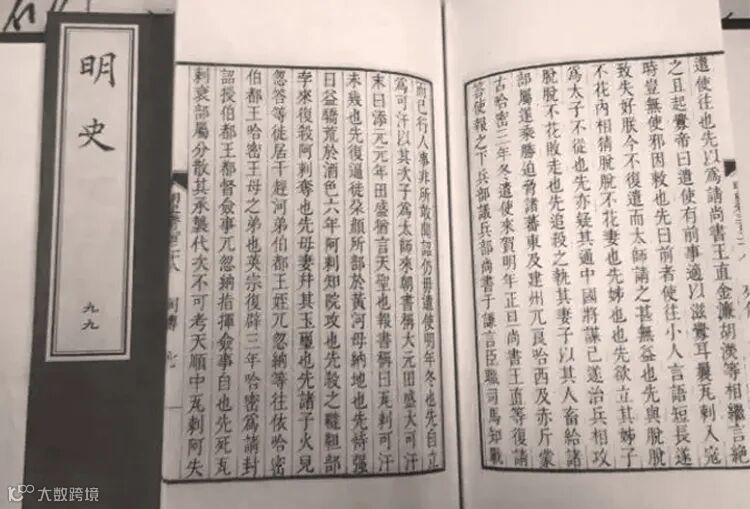 遣使往也先以爲請尚書王直金濂胡濙等相繼言絕
之且起釁帝曰遣使有前事適以滋釁耳曩瓦剌入寇
時豈無使邪因敕也先曰前者使往小人言語短長遂
致失好朕今不復遣而太師請之甚無益也先與脫脫
不花內相猜脫脫不花妻也先姊也也先欲立其姊子
爲太子不從也先亦疑其通中國將謀己遂治兵相攻
脫脫不花敗走也先追殺之執其妻子以其人畜給諸
部屬遂乘勝迫脅諸蕃東及建州兀良哈西及赤斤蒙
古哈密三年冬遣使來賀明年正旦尚書王直等復請
答使報之下兵部議兵部尚書于謙言臣職司馬知戰
而已行人事非所敢聞詔仍毋遣使明年冬也先自立
爲可汗以其次子爲太師來朝書稱大元田盛大可汗
末曰添元元年田盛猶言天聖也報書稱曰瓦剌可汗
未幾也先復逼徙朶顏所部於黃河母納地也先恃强
日益驕荒於酒色六年阿剌知院攻也先殺之韃靼部
孛來復殺阿剌奪也先母妻幷其玉璽也先諸子火兒
忽答等徙居干趕河弟伯都王姪兀忽納等往依哈密
伯都王哈密王母之弟也英宗復辟三年哈密爲請封
詔授伯都王都督僉事兀忽納指揮僉事自也先死瓦
剌衰部屬分散其承襲代次不可考天順中瓦剌阿失
列傳 七
明史
九九
大数跨境